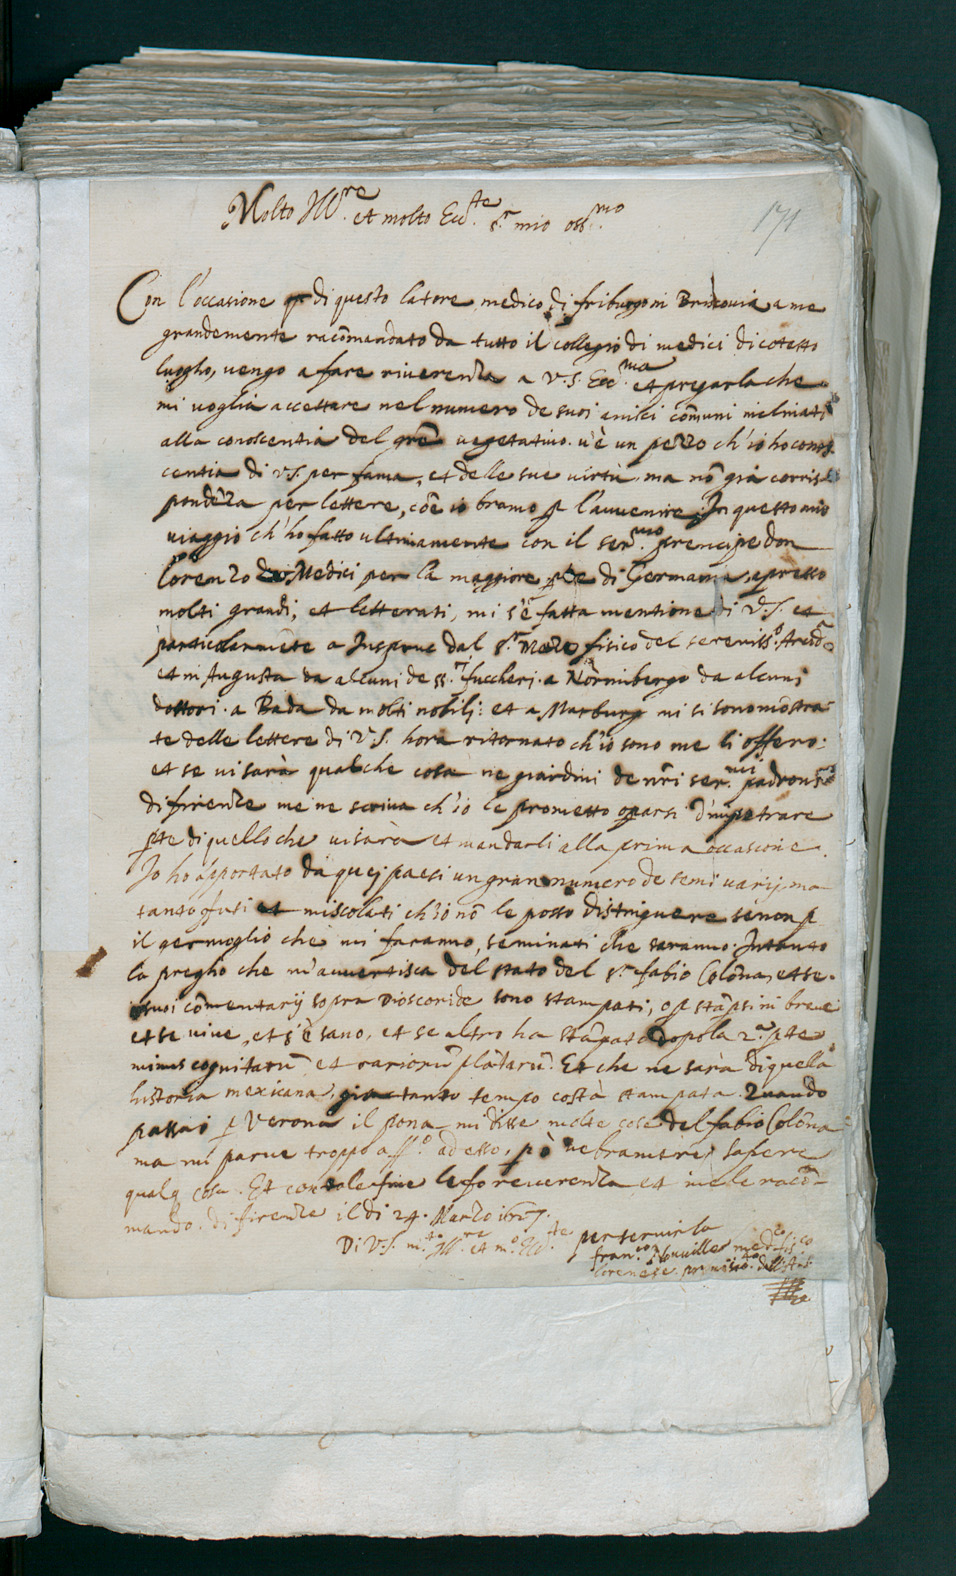 Molto Ill.re et molto Ecc.te s.r mio oss.mo
171
Con l'occasione di questo latore medico di friburgo in Briscovia a me
grandemente racõmandato da tutto il collegio di medici di cotesto
luogho, vengo a fare riverenza a V.S. Ecc.ma et pregarla che
mi voglia accettare nel numero de suoi amici cõmuni inclinati
alla conoscentia del gñe vegetativo. v'è un pezzo ch'io ho conos-
centia di V.S. per fama, et delle sue virtù ma nõ già corris-
pondẽza per lettere, cõe io bramo p l'avvenire. In questo mio
viaggio ch'ho fatto ultimamente con il ser.mo prencipe don
Lorenzo de Medici per la maggiore pte di Germania, apresso
molti grandi, et letterati, mi s'è fatta mentione di V.S. et
particolarmẽte a Inspruc dal s.r fisico del sereniss.o Arcid.
et in Augusta da alcuni de ss.ri fuccheri. a Nõrimbergo da alcuni
dottori. a Bada da molti nobili: et a Marburg mi si sono mõstra-
te delle lettere di V.S. hora ritornato ch'io sono me li offero:
et se vi sarà qualche cosa ne giardini de nr̃i ser.mi padroni
di firenze me ne scriva ch'io le prometto oprarsi d'impetrare
pte di quello che vi sarà et mandarli alla prima occasione.
Io ho apportato da quei paesi un gran numero de semi varij, ma
tanto cõfusi et miscolati ch'io nõ le posso distinguere senon p
il germoglio che mi faranno, seminati che saranno. Intanto
la pregho che m'avvertisca del stato del s.r fabio Colõna, et se
i suoi cõmentarij sopra Dioscoride sono stampati, o p stãpsi in breve
et se vive, et s'è sano, et se altro ha stãpato dopo la 2.a pte
minus cognitarũ, et rariorũ plãtarũ. Et che ne sarà di quella
historia mexicana, già tanto tempo costà stampata. Quando
passai p Verona il pona mi disse molte cose del fabio Colõna
ma mi parve troppo aff.o ad esso, pò ne bramerei sapere
qualq cosa. Et con tale fine le fo reverenza et me le racõ-
mando. di firenze il di 24. Marzo 1627.
Di V.S. m.to Ill.re et m.o Ecc.te per servirla
fran.co
lorenese.